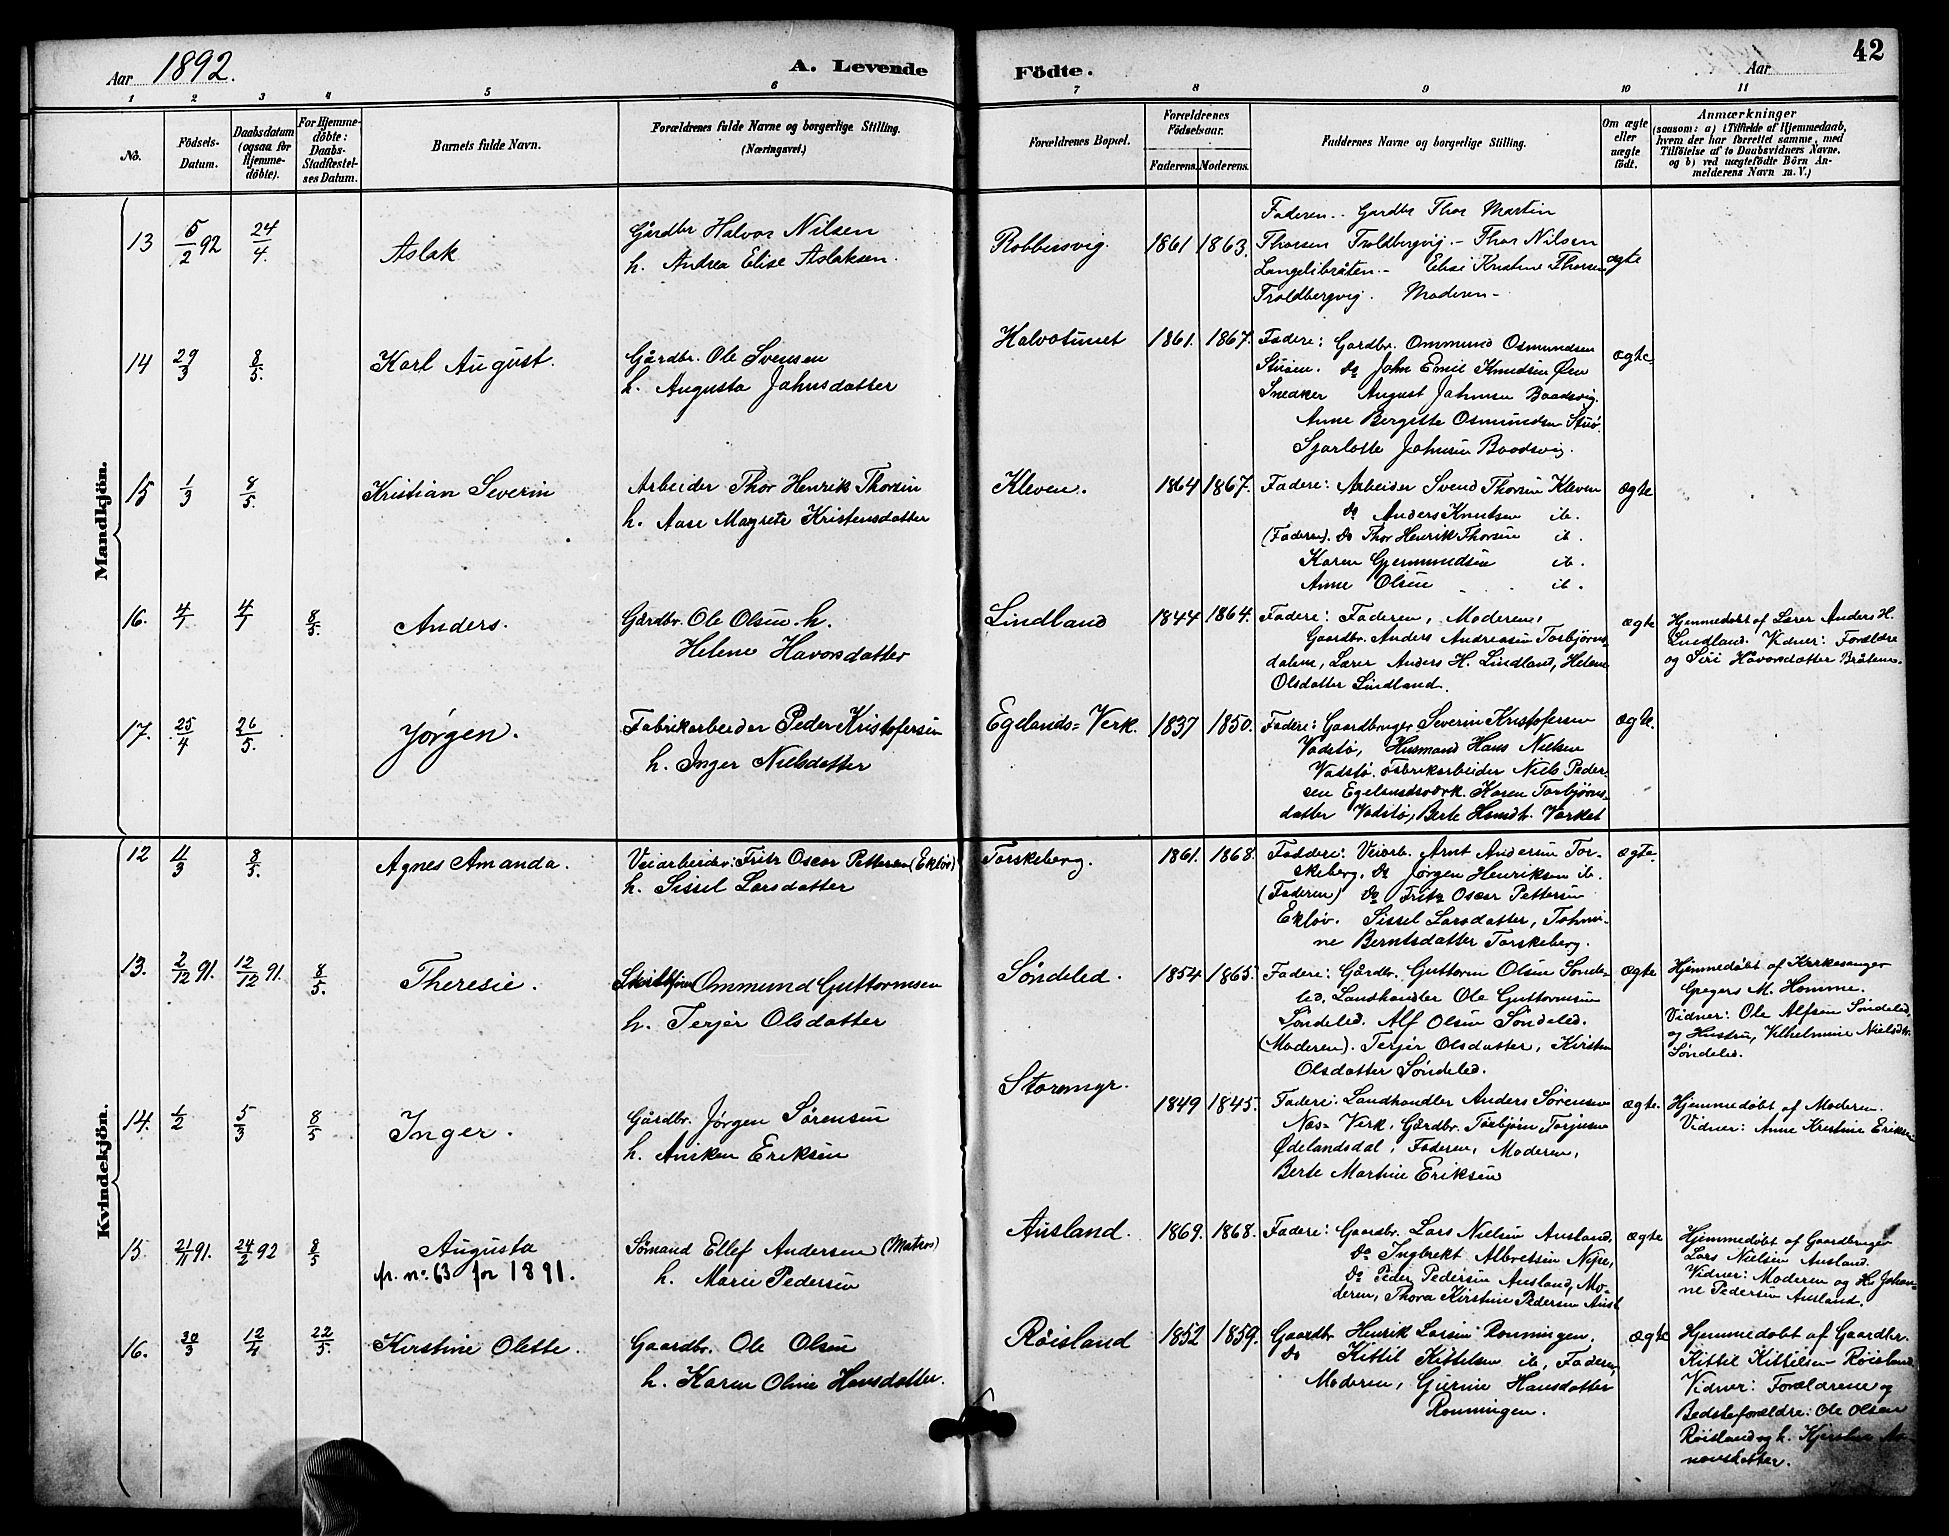 42
Aar 1892.
A. Levende
Födte.
Aar
1 2 3 4 5 6 7 8 9 10 11
No.
Födsels-
Datum.
Daabsdatum
(ogsaa for
Hjemme-
döbte).
For Hjemme-
döbte:
Daabs-
Stadfæstel-
ses Datum.
Barnets fulde Navn.
Forældrenes fulde Navne og borgerlige Stilling.
(Næringsvei.)
Forældrenes Bopæl.
Forældrenes
Födselsaar.
Faderens. Moderens.
Faddernes Navne og borgerlige Stilling.
Om ægte
eller
uægte
födt.
Anmærkninger
(saasom: a) i Tilfælde af Hjemmedaab,
hvem der har forrettet samme, med
Tilföielse af to Daabsvidners Navne,
og b) ved uægtefödte Börn An-
melderens Navn m. V.)
Mandkjön.
13 5/2 92 24/4. Aslak
Gårdbr Halvor Nilsen
h. Andrea Elise Aslaksen.
Robbersvig. 1861 1863.
Faderen.- Gardbr Thor Martin
Thorsen Troldbergvig.- Thor Nilsen
Langelibråten.- Elise Kristine Thorsen
Troldbergvig. Moderen-
ægte
14 29/3 8/5. Karl August.
Gårdbr. Ole Svensen
h. Augusta Jahnsdatter
Halvotunet 1861. 1867.
Fadere: Gardbr. Ommund Osmundsen
Stuöen. do John Emil Knudsen Øen
Snedker August Jahnsen Boodsvig.
Anne Bergitte Osmundsen Stuö.
Sjarlotte Jahnsen Boodsvig.
ægte
15 1/3 8/5. Kristian Severin
Arbeider Thor Henrik Thorsen
h. Aase Magrete Kristensdatter
Kleven. 1864 1867.
Fadere: Arbeider Svend Thorsen Kleven
do Anders Knutsen ib.
(Faderen). do Thor Henrik Thorsen ib.
Karen Gjermundsen ib.
Anne Olsen ib.
ægte
16. 4/1 4/1 8/5. Anders.
Gårdbr. Ole Olsen h.
Helene Havorsdatter
Lindland 1844 1864.
Fadere: Faderen, Moderen,
Gaardbr. Anders Andreasen Torbjörns-
dalen, Lærer Anders H. Lindland, Helene
Olsdatter Lindland.
ægte
Hjemmedöbt af Lærer Anders H.
Lindland. Vidner: Forældre
og Siri Havorsdatter Bråtene.
17. 25/4 26/5. Jörgen.
Fabrikarbeider Peder Kristofersen
h. Inger Nielsdatter
Egelands=Verk. 1837 1850.
Fadere: Gaardbruger Severin Kristofersen
Vadstö, Husmand Hans Nielsen
Vadstö. Fabrikarbeider Niels Peder-
sen Egelandsværk. Karen Torbjörns-
datter Vadstö, Berte Hansdt. Værket
ægte.
Kvindekjön.
12 11/3 8/5. Agnes Amanda.
Veiarbeider: Fritz Oscar Pettersen (Eklöv)
h. Sissel Larsdatter
Torskeberg. 1861. 1868.
Faddere: Veiarb. Arnt Andersen Tor-
skeberg. do Jörgen Henriksen ib.
(Faderen) do Fritz Oscar Pettersen
Eklöv. Sissel Larsdatter,
ne Berntsdatter Torskeberg.
ægte.
13. 2/12 91. 12/12 91. 8/5. Theresie.
Ommund Guttormsen
h. Terjer Olsdatter
Söndeled. 1854 1865.
Fadere: Gårdbr. Guttorm Olsen Sönde-
led, Landhandler Ole Guttormsen
Söndeled. Alf Olsen Söndeled.
(Moderen). Terjer Olsdatter, Kirsten
Olsdatter Söndeled.
ægte
Hjemmedöbt af Kirkesanger
Gregers M. Homme.
Vidner: Ole Alfsen Söndeled,
og Hustru, Vilhelmine Nielsdt.
Söndeled.
14. 1/2 5/3 8/5 Inger.
Gårdbr. Jörgen Sörensen
h. Aniken Eriksen
Storemyr. 1849 1845.
Fadere: Landhandler Anders Sörensen
Næs=Verk, Gårdbr. Torbjörn Torjusen
Ødelandsdal, Faderen, Moderen,
Berte Martine Eriksen
ægte.
Hjemmedöbt af Moderen.
Vidner: Anne Kristine Eriksen
15. 21/11 91. 24/2 92 8/5 Augusta
fr. no. 63 for 1891.
Sömand Ellef Andersen (Matros)
h. Marie Pedersen
Ausland. 1869. 1868.
Fadere: Gaardbr. Lars Nielsen Ausland,
do Ingbrekt Albretsen Nipe,
do Peder Pedersen Ausland, Mo-
deren, Thora Kirstine Pedersen Ausl.
ægte
Hjemmedöbt af Gaardbruger
Lars Nielsen Ausland.
Vidner: Moderen og Hu. Johan-
ne Pedersen Ausland.
16. 30/3 12/4 22/5. Kirstine Olette.
Gaardbr. Ole Olsen
h. Karen Oline Hansdatter.
Röisland 1852 1859.
Gaardbr Henrik Larsen Rönningen.
do Kittil Kittelsen ib, Faderen,
Moderen, Gurine Hansdatter
Rönningen.
ægte
Hjemmedöbt af Gaardbr.
Kittil Kittilsen Röisland.
Vidner: Forældrene og
Bedsteforældre: Ole Olsen
Röisland og h. Kjersten